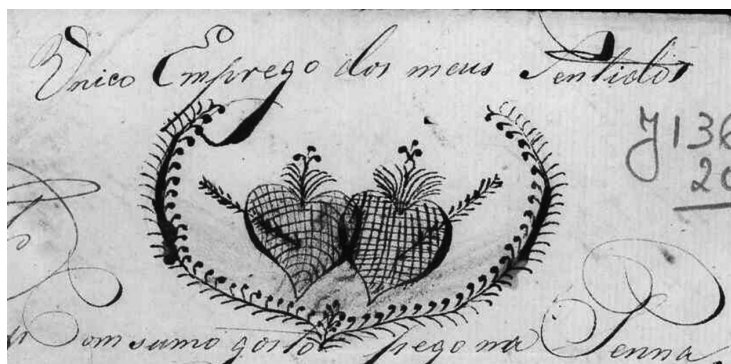 Unico Emprego dos meus Sentidos
J136
20
Com sumo gosto pego na Penna